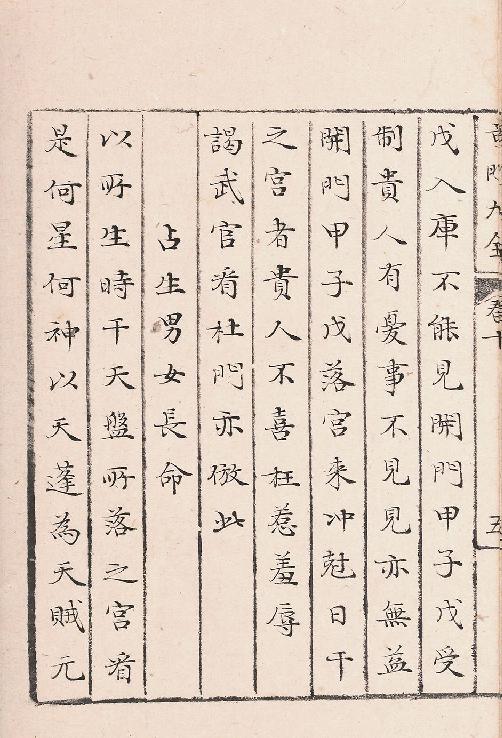 奇門大全 卷十 五
戊入庫不能見開門甲子戊受
制貴人有憂事不見見亦無益
開門甲子戊落宮來冲尅日干
之宮者貴人不喜枉惹羞辱
謁武官看杜門亦倣此
占生男女長命
以所生時干天盤所落之宮看
是何星何神以天蓬為天賊元